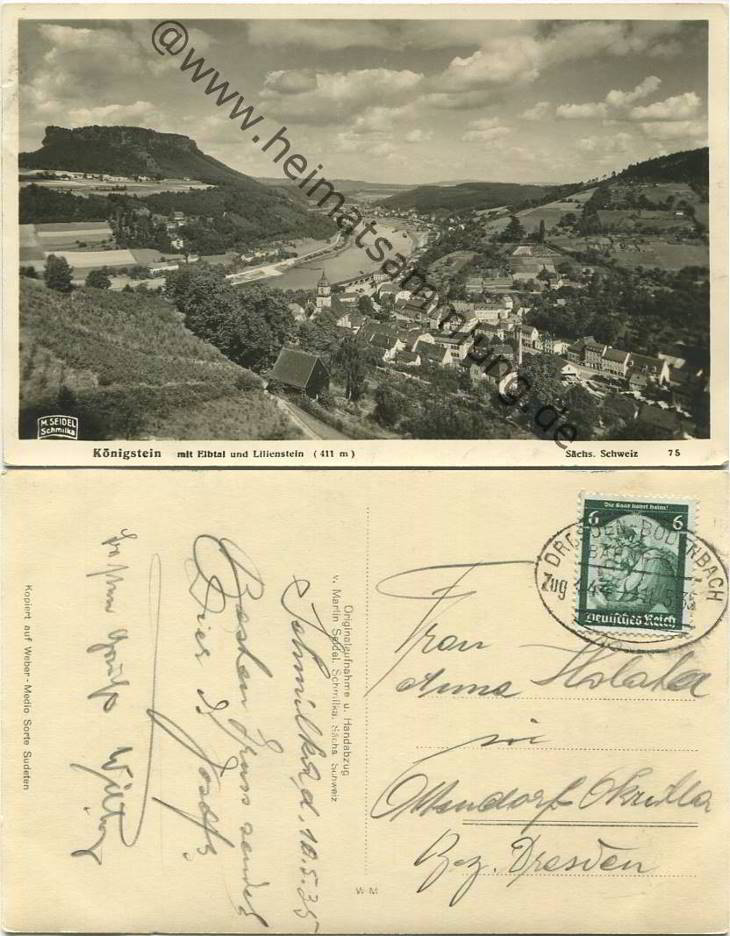 @www.heimatsammlung.de
M. SEIDEL
Schmilka
Königstein mit Elbtal und Lilienstein (411 m) Sächs. Schweiz 75
Kopiert auf Weber-Medio Sorte Sudeten
Originalaufnahme u. Handabzug
v. Martin Seidel, Schmilka, Sächs. Schweiz
W M
Schmilka, d. 10.5.35
Besten Gruss sendet
Dier
Josef.
Die Saar kehrt heim!
6 6
Deutsches Reich
DRESDEN-BODENBACH
BAHNPOST
Zug
Frau
Anna
in
Ottendorf Okrilla
Bez. Dresden